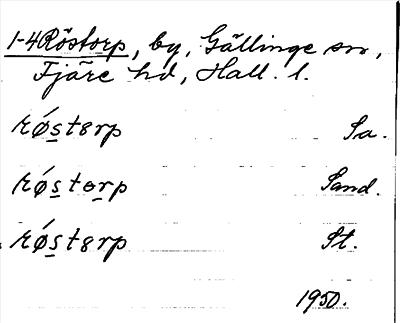 1-4 Röstorp, by, Gällinge sn,
Fjäre hd, Hall. l.
rǿstørp Sa.
rǿstørp Sand.
rǿstørp St.
1950.